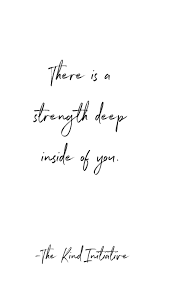 There is a
strength deep
inside of you.
-The Kind Initiative